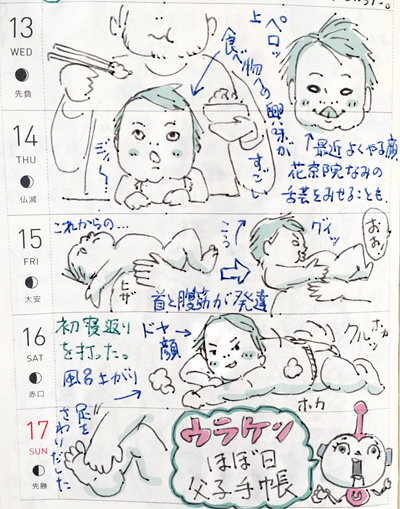 13
WED
先負
ペロッ
上
食べ物への興味がすごい
ジィ〜!
↑最近よくやる顔
花京院なみの
舌芸をみせることも。
14
THU
仏滅
15
FRI
大安
これからの…
ヒザ
グイッ
おお!
首と腹筋が発達
16
SAT
赤口
初寝返り
を打った。
ドヤ顔
風呂上がり
クルッ
ホカ
ホカ
17
SUN
先勝
足を
さわりだした
ウラケン
ほぼ日
父子手帳